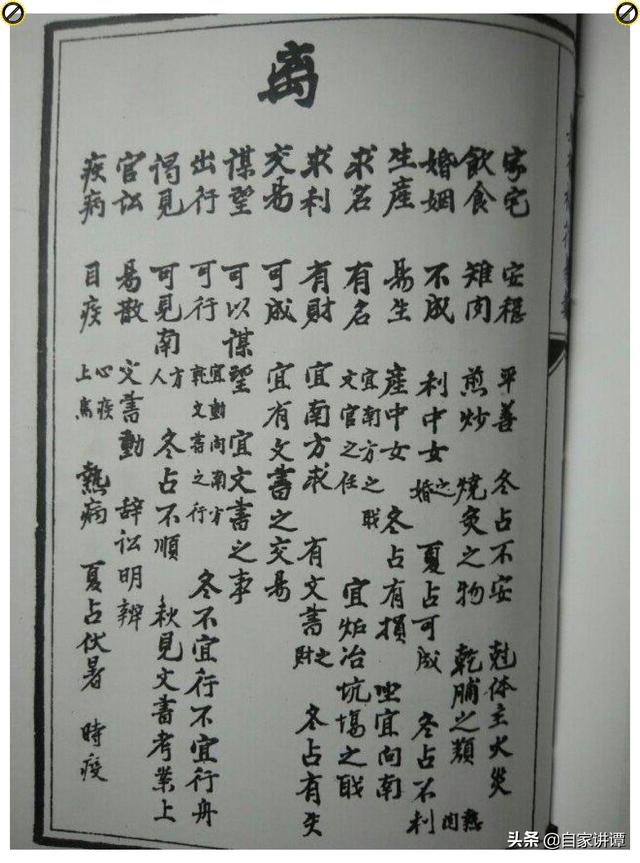 离
家宅 安穩 平善 冬占不安 尅体主火災
飲食 雉肉 煎炒 燒炙之物 乾脯之類 熱肉
婚姻 不成 利中女之婚 夏占可成 冬占不利
生產 易生 產中女 冬占有損 坐宜向南
求名 有名 宜南方之職 文官之任 宜炉冶坑塲之職
求利 有財 宜南方求 有文書之財 冬占有失
交易 可成 宜有文書之交易
謀望 可以謀望 宜文書之事
出行 可行 宜動向南方 乾文書之行 冬不宜行不宜行舟
謁見 可見南方人 冬占不順 秋見文書考業上
官訟 易散 文書動 辞訟明辨
疾病 目疾 心疾 上焦 熱病 夏占伏暑 時疫
头条 @自家讲谭